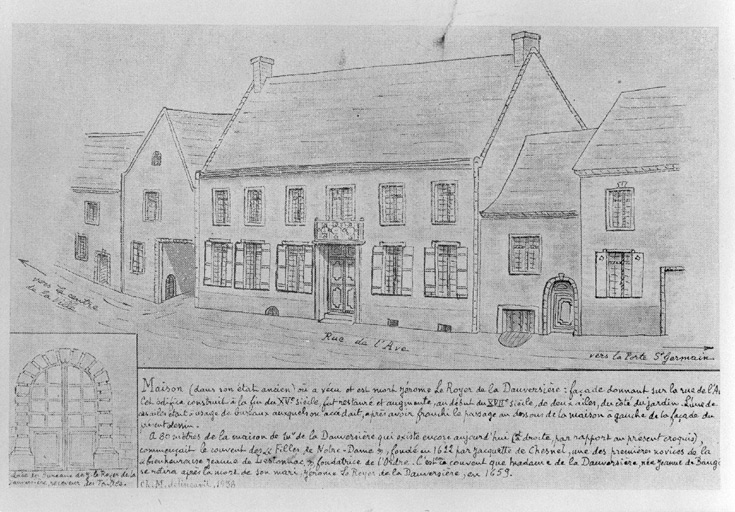 vers le centre
de la ville
Rue de l'Ave
vers la Porte St Germain
Maison (dans son état ancien) où a vécu et est mort Jérôme Le Royer de la Dauversière : façade donnant sur la rue de l'A
Cet édifice construit à la fin du XVe siècle, fut restauré et augmenté, au début du XVIIe siècle, de deux ailes, du côté du jardin. L'une de
ces ailes était à usage de bureaux auxquels on accédait, après avoir franchi le passage au dessous de la maison à gauche de la façade du
A 80 mètres de la maison de Mr de la Dauversière qui existe encore aujourd'hui (à droite, par rapport au présent croquis),
commençait le couvent des « Filles de Notre-Dame », fondé en 1622 par Jacquette de Chesnel, une des premières novices de la
bienheureuse Jeanne de Lestonnac, fondatrice de l'Ordre. C'est ce couvent que madame de la Dauversière née Jeanne de Baugé
se retira après la mort de son mari, Jérôme Le Royer de la Dauversière, en 1659.
Bureaux de Mr Le Royer de la
Dauversière, receveur des Tailles.